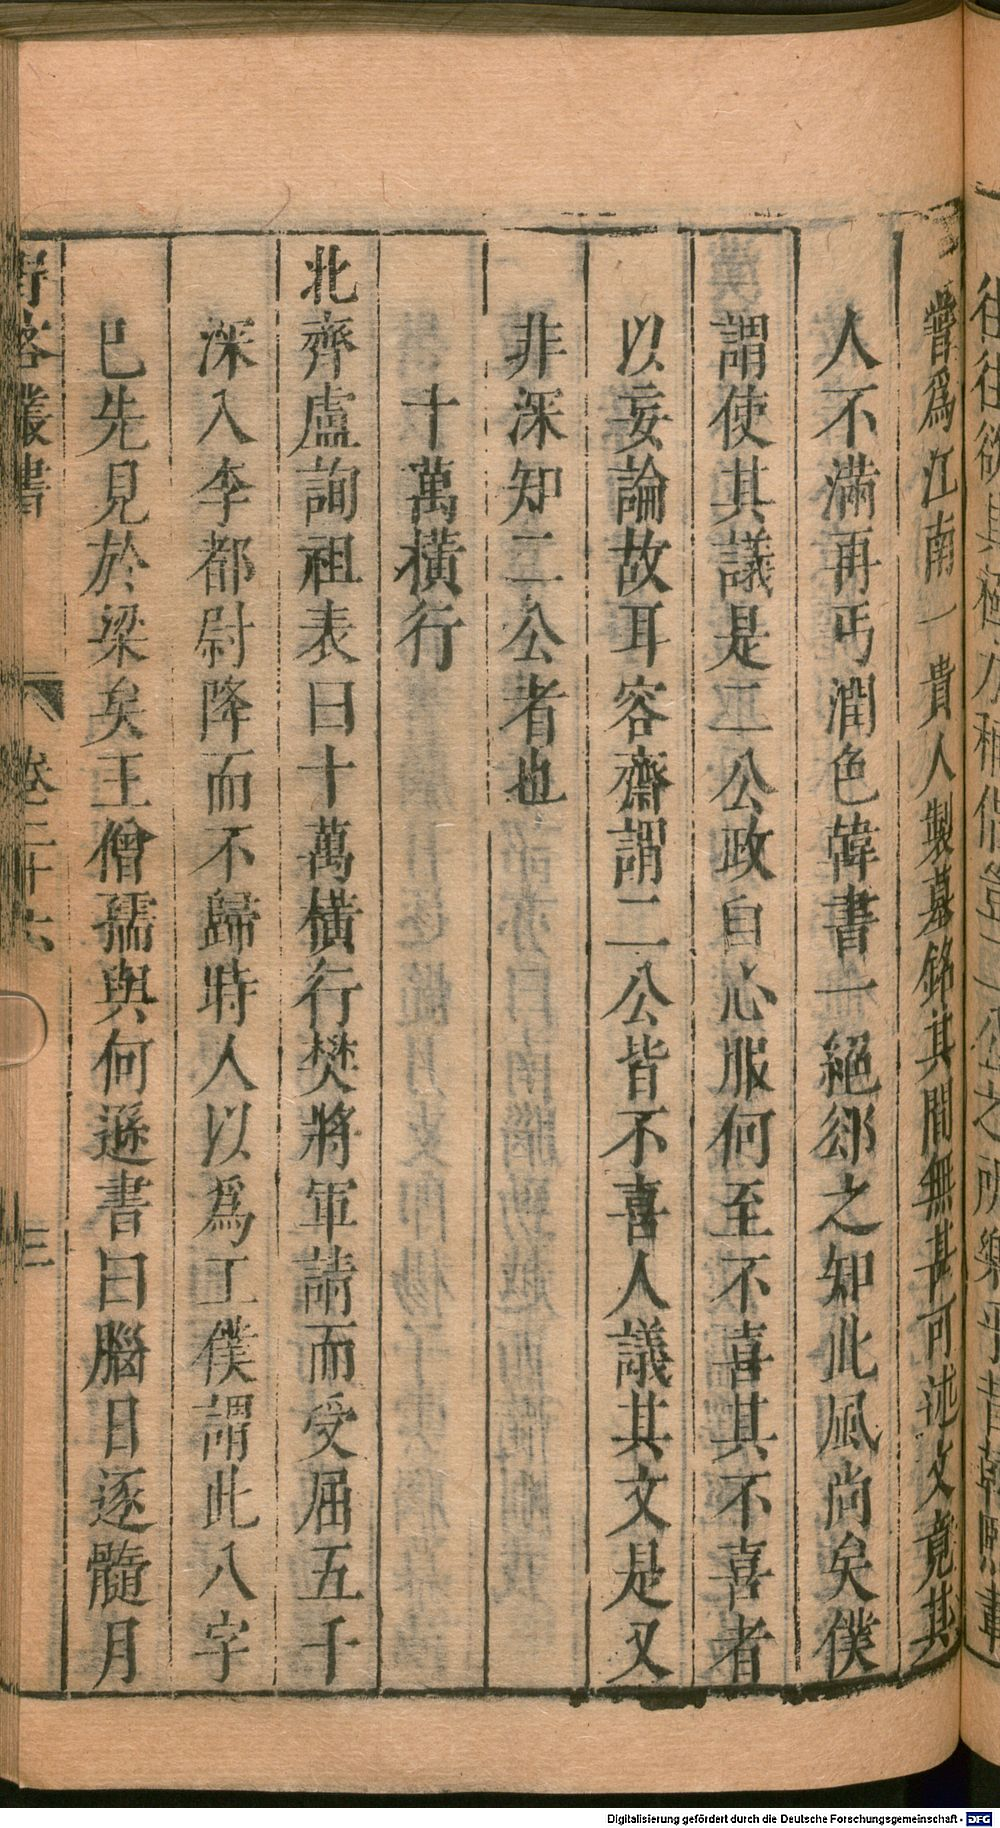 嘗爲江南一貴人製墓銘其間無甚可述文竟其
人不滿再丐潤色韓書一絕郤之知此風尚矣僕
謂使其議是二公政自心服何至不喜其不喜者
以妄論故耳容齋謂二公皆不喜人議其文是又
非深知二公者也
十萬橫行
北齊盧詢祖表曰十萬橫行樊將軍請而受屈五千
深入李都尉降而不歸時人以爲工僕謂此八字
已先見於梁矣王僧孺與何遜書曰腦日逐髓月
野客叢書
卷二十六
三
Digitalisierung gefördert durch die Deutsche Forschungsgemeinschaft - DFG